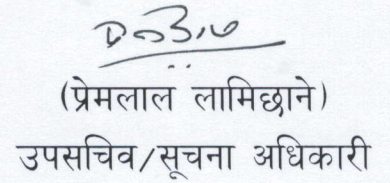 (प्रेमलाल लामिछाने)
उपसचिव/सूचना अधिकारी